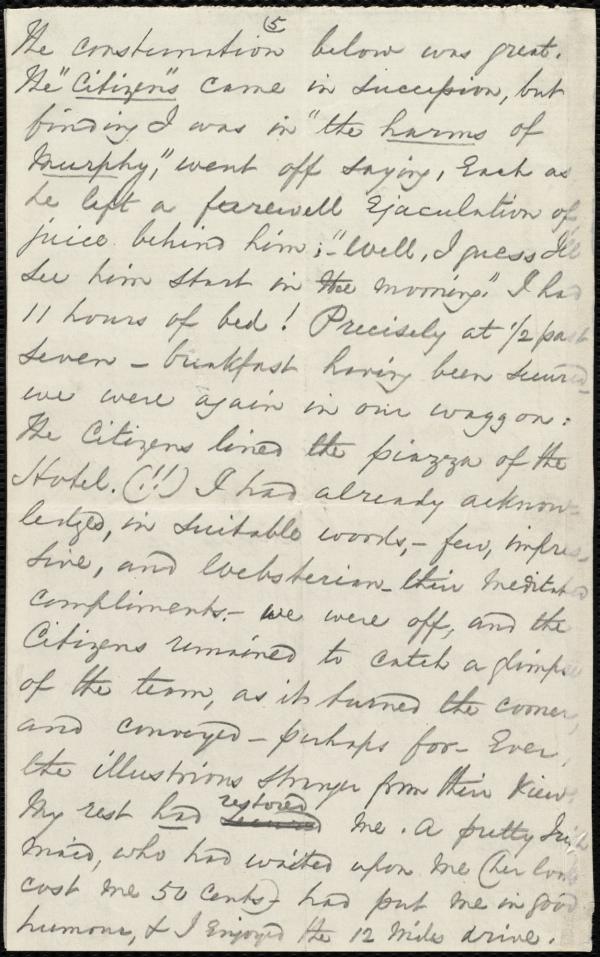 (5
The consternation below was great.
The "Citizens" came in succession, but
finding I was in "the harms of
Murphy," went off saying, Each as
he left a farewell Ejaculation of
juice behind him;- "Well, I guess I'll
see him start in the morning." I had
11 hours of bed! Precisely at 1/2 past
seven - breakfast having been secured -
we were again in our waggon:
The Citizens lined the piazza of the
Hotel. (!!) I had already acknow-
ledged, in suitable words, - few, impres-
sive, and Websterian - their meditated
compliments. - we were off, and the
Citizens remained to catch a glimpse
of the team, as it turned the corner,
and conveyed - perhaps for - Ever,
the illustrious stranger from their view.
My rest had restored me. A pretty Irish
maid, who had waited upon me (her
cost me 50 cents) had put me in good
humour, & I Enjoyed the 12 miles drive.